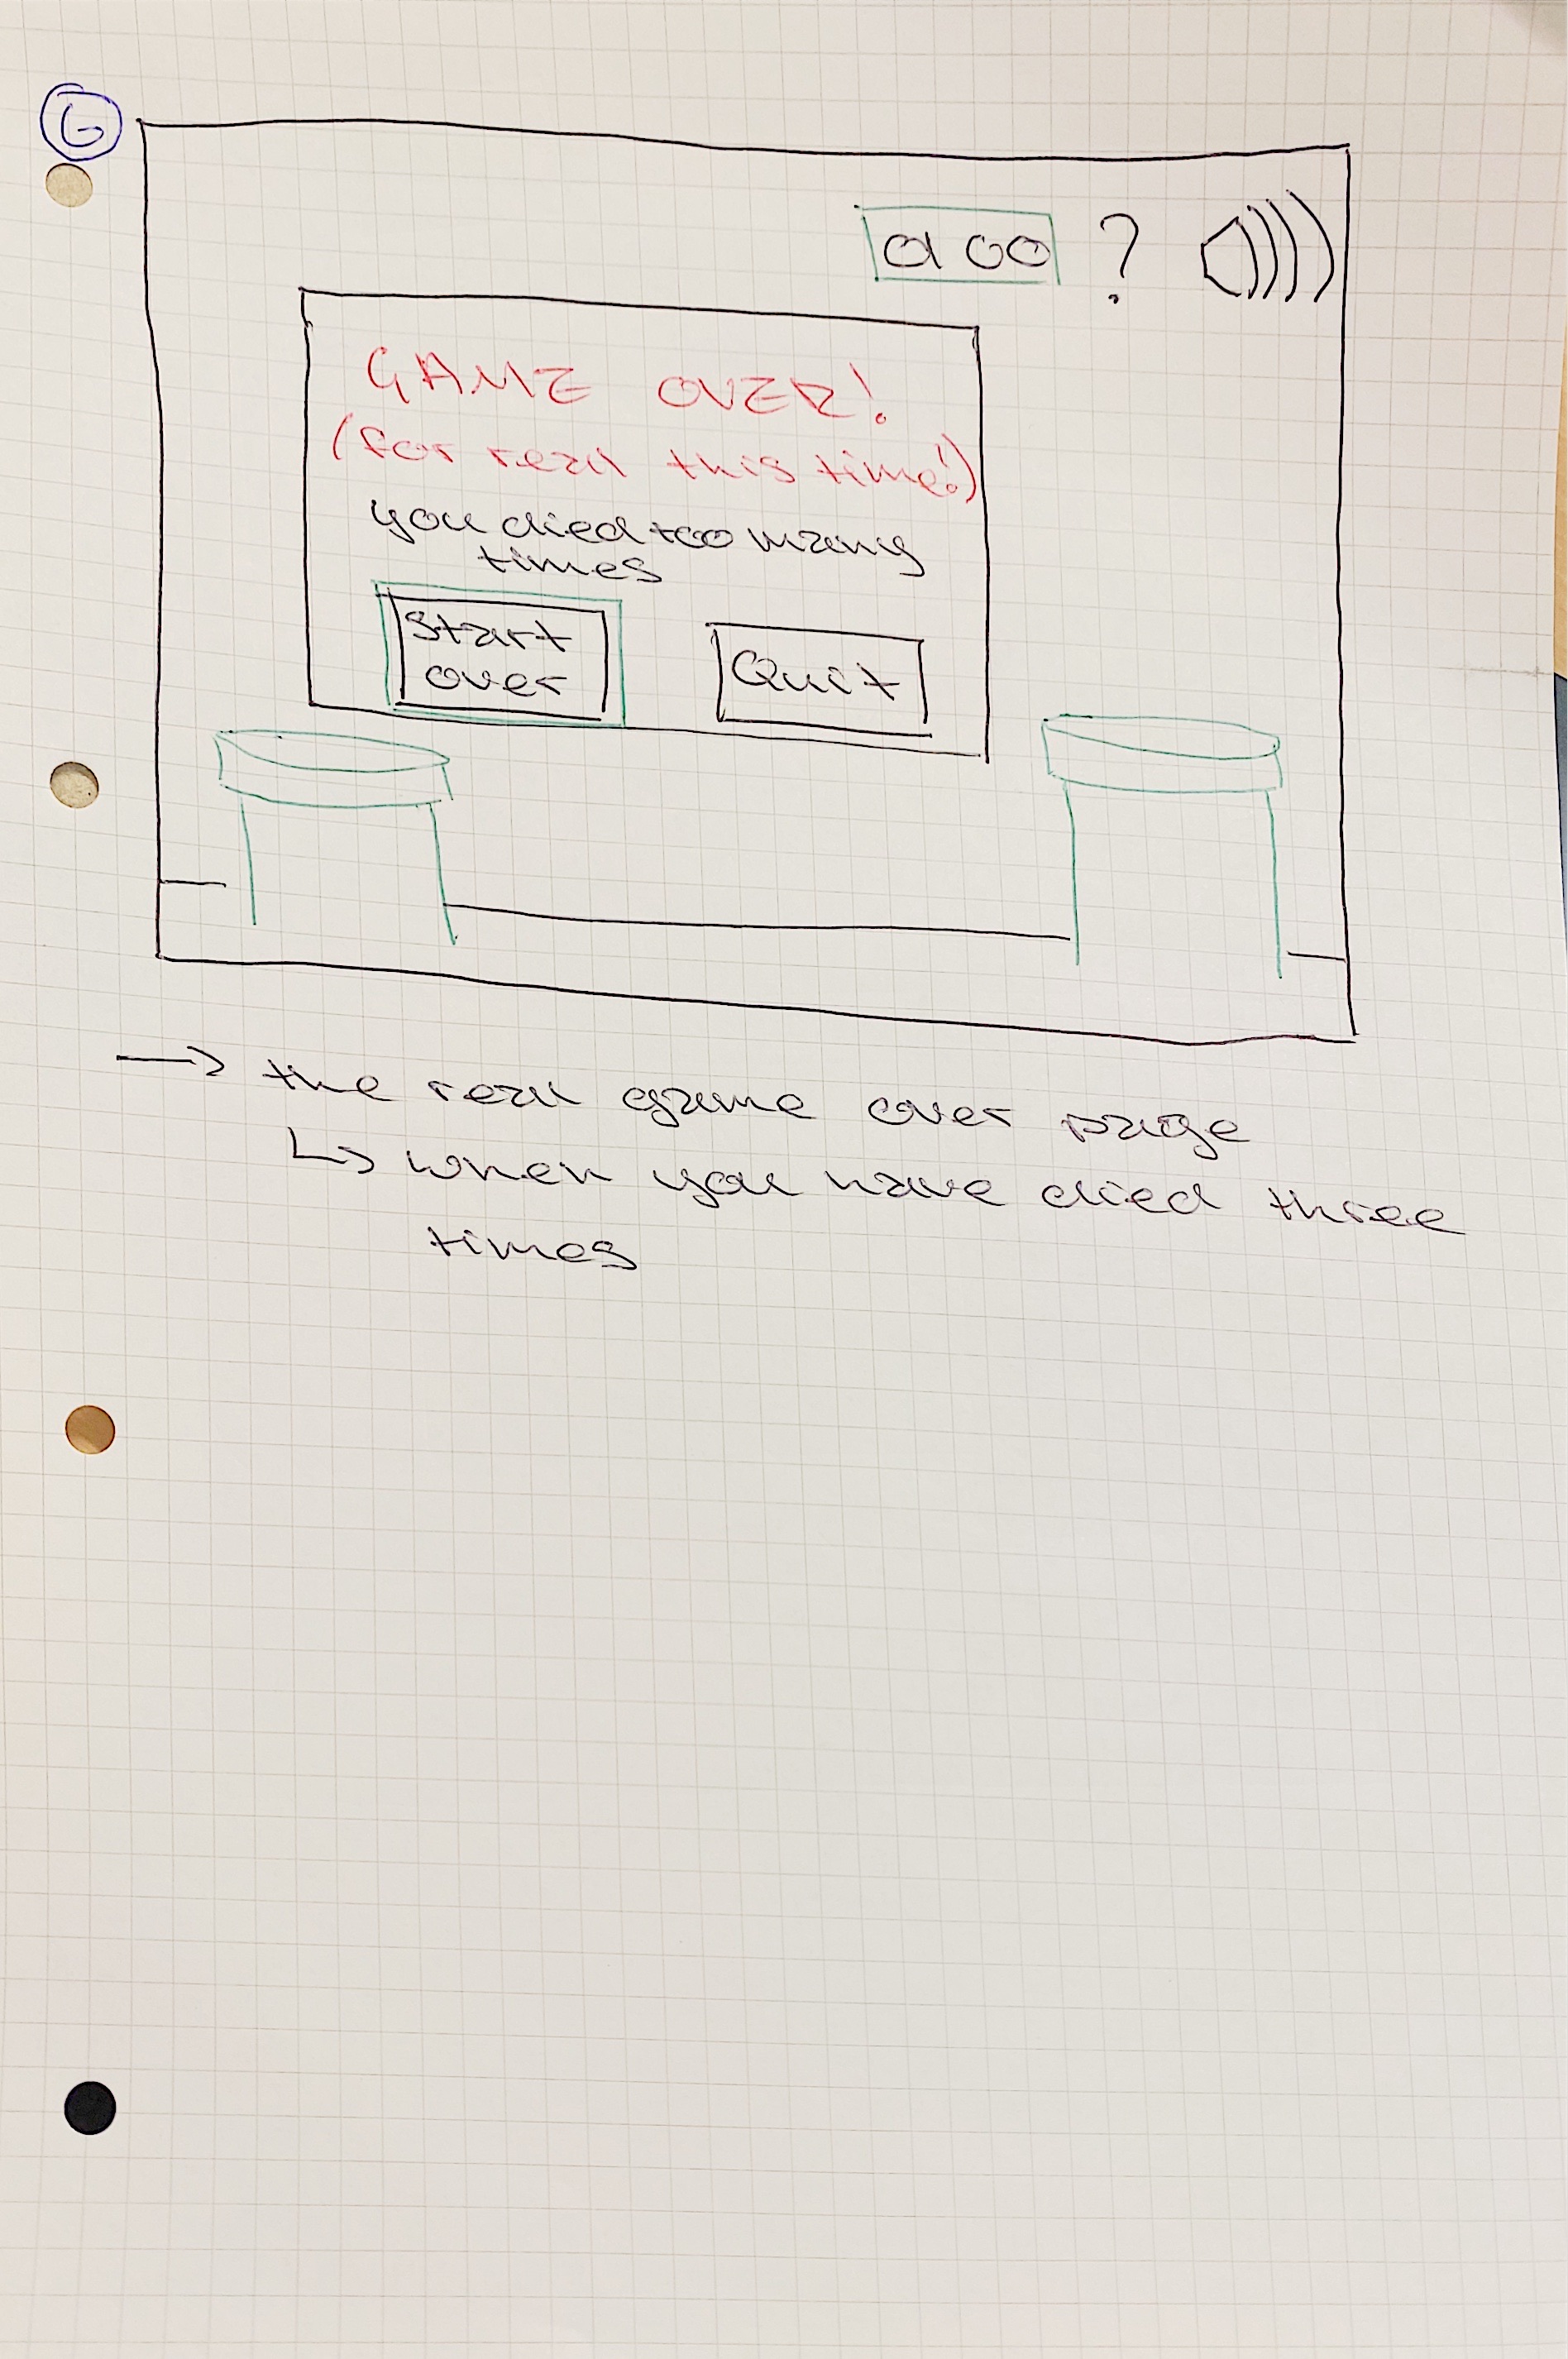 6
00 ?
GAME OVER!
(for real this time!)
you died too many
times
Start
over
Quit
→ the real game over page
↳ when you have died three
times